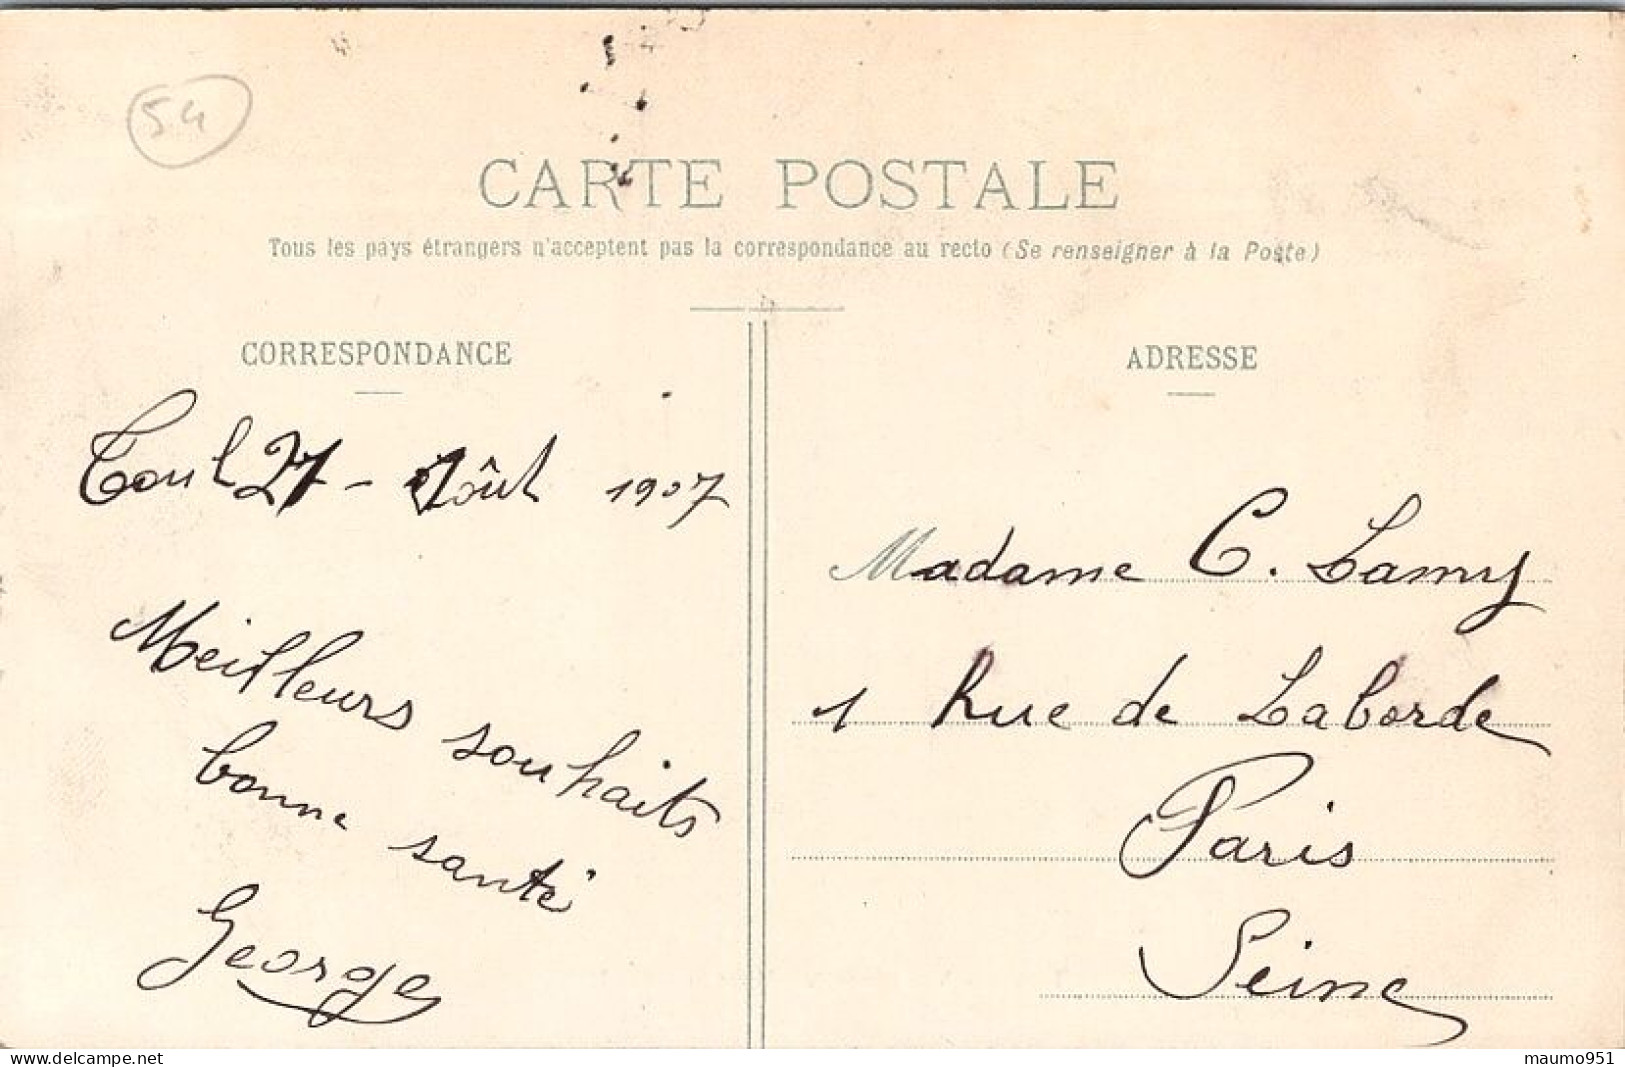 54
CARTE POSTALE
Tous les pays étrangers n'acceptent pas la correspondance au recto (Se renseigner à la Poste)
CORRESPONDANCE
Toul 27 - Août 1907
Meilleurs souhaits
bonne santé
George
ADRESSE
Madame C. Lamy
1 Rue de Laborde
Paris
Seine
www.delcampe.net
maumo951